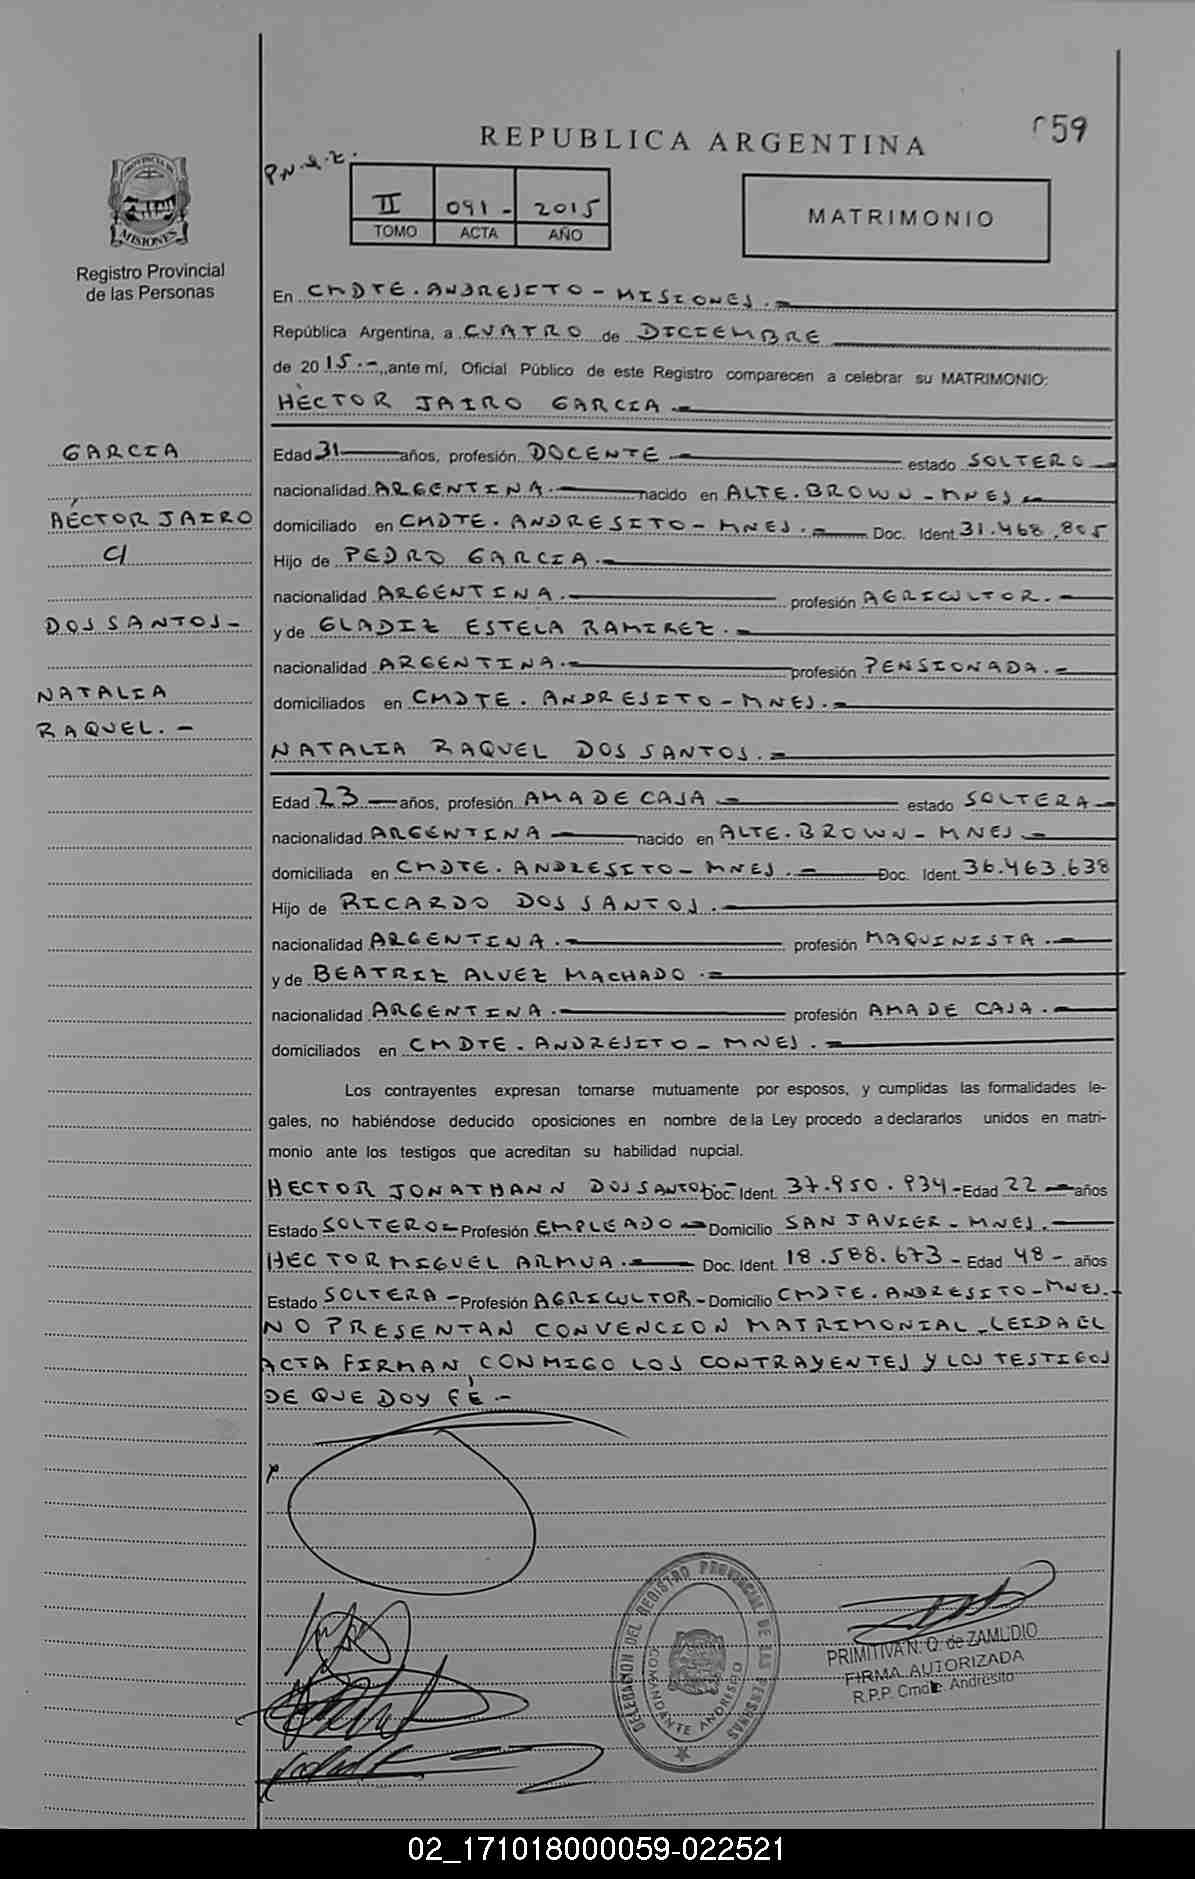 059
REPUBLICA ARGENTINA
P.N.I.Z.
II 091- 2015
TOMO ACTA AÑO
MATRIMONIO
PROVINCIA DE
MISIONES
Registro Provincial
de las Personas
En CMDTE. ANDRESITO - MISIONES.-
República Argentina, a CUATRO de DICIEMBRE
de 2015.- ,ante mí, Oficial Público de este Registro comparecen a celebrar su MATRIMONIO:
HÉCTOR JAIRO GARCIA.-
GARCIA
HÉCTOR JAIRO
C/
DOS SANTOS-
NATALIA
RAQUEL.-
Edad 31 años, profesión DOCENTE - estado SOLTERO-
nacionalidad ARGENTINA.- nacido en ALTE. BROWN - MNES.-
domiciliado en CMDTE. ANDRESITO - MNES.- Doc. Ident. 31.468.805
Hijo de PEDRO GARCIA.-
nacionalidad ARGENTINA.- profesión AGRICULTOR.-
y de GLADIZ ESTELA RAMIREZ.-
nacionalidad ARGENTINA.- profesión PENSIONADA.-
domiciliados en CMDTE. ANDRESITO - MNES.-
NATALIA RAQUEL DOS SANTOS.-
Edad 23 - años, profesión AMA DE CASA - estado SOLTERA-
nacionalidad ARGENTINA - nacido en ALTE. BROWN - MNES.-
domiciliada en CMDTE. ANDRESITO - MNES.- Doc. Ident. 36.463.638
Hijo de RICARDO DOS SANTOS.-
nacionalidad ARGENTINA.- profesión MAQUINISTA.-
y de BEATRIZ ALVEZ MACHADO.-
nacionalidad ARGENTINA.- profesión AMA DE CASA.-
domiciliados en CMDTE. ANDRESITO - MNES.-
Los contrayentes expresan tomarse mutuamente por esposos, y cumplidas las formalidades le-
gales, no habiéndose deducido oposiciones en nombre de la Ley procedo a declararlos unidos en matri-
monio ante los testigos que acreditan su habilidad nupcial.
HECTOR JONATHANN DOS SANTOS.- Doc. Ident. 37.950.934 - Edad 22 - años
Estado SOLTERO - Profesión EMPLEADO - Domicilio SAN JAVIER - MNES.-
HECTOR MIGUEL ARMUA.- Doc. Ident. 18.588.673 - Edad 48 - años
Estado SOLTERA - Profesión AGRICULTOR - Domicilio CMDTE. ANDRESITO - MNES.-
NO PRESENTAN CONVENCION MATRIMONIAL - LEIDA EL
ACTA FIRMAN CONMIGO LOS CONTRAYENTES Y LOS TESTIGOS
DE QUE DOY FÉ.-
DELEGACION DEL REGISTRO PROVINCIAL DE LAS PERSONAS
COMANDANTE ANDRESITO
PRIMITIVA N. Q. de ZAMUDIO
FIRMA AUTORIZADA
R.P.P. Cmdte. Andresito
02_171018000059-022521